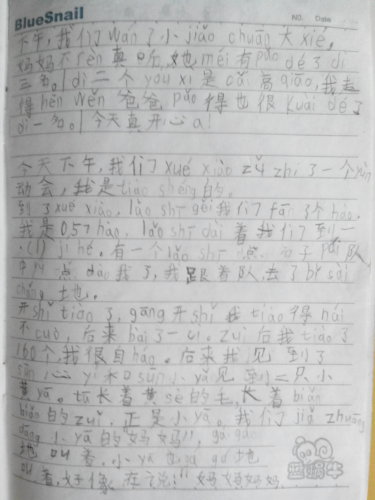 BlueSnail
NO.
Date
下午,我们 wán 了小 jiǎo chuān 大 xié,
妈妈不 rèn 真 ,她 méi 有 pǎo dé 了 dì
三名。dì 二个 yóu xì 是 cǎi 高 qiāo,我走
得 hěn wěn 爸爸 pǎo 得也很 kuài dé 了
dì 一名。今天真开心 a!
今天下午,我们 xué xiào zǔ zhī 了一个 yùn
动会,我是 tiào shéng 的。
到了 xué xiào, lǎo shī gěi 我们 fā 了个 hào,
我是 057 hào, lǎo shī dài 着我们到一
(1) jí hé,有一个 lǎo shī 点 名子 pái 队
点 dào 我了,我跟着队,去了 bǐ sài
chǎng 地。
开 shǐ tiào 了, gāng 开 shǐ 我 tiào 得 hái
不 cuò,后来 bài 了一 ,zuì 后我 tiào 了
160个我很自 háo。后来我见到了
sūn yí 和 sūn 小 yǎ 见到二只小
黄 yā。tā 长着黄 sè 的毛,长着 biǎn
biǎn 的 zuǐ,正是小 yā。我们 jiǎ zhuāng
dāng 小 yā 的妈妈, gā gā
地叫着,小 yā 也 gā gā 地
叫着,好像在说:妈妈妈妈
蓝蜗牛